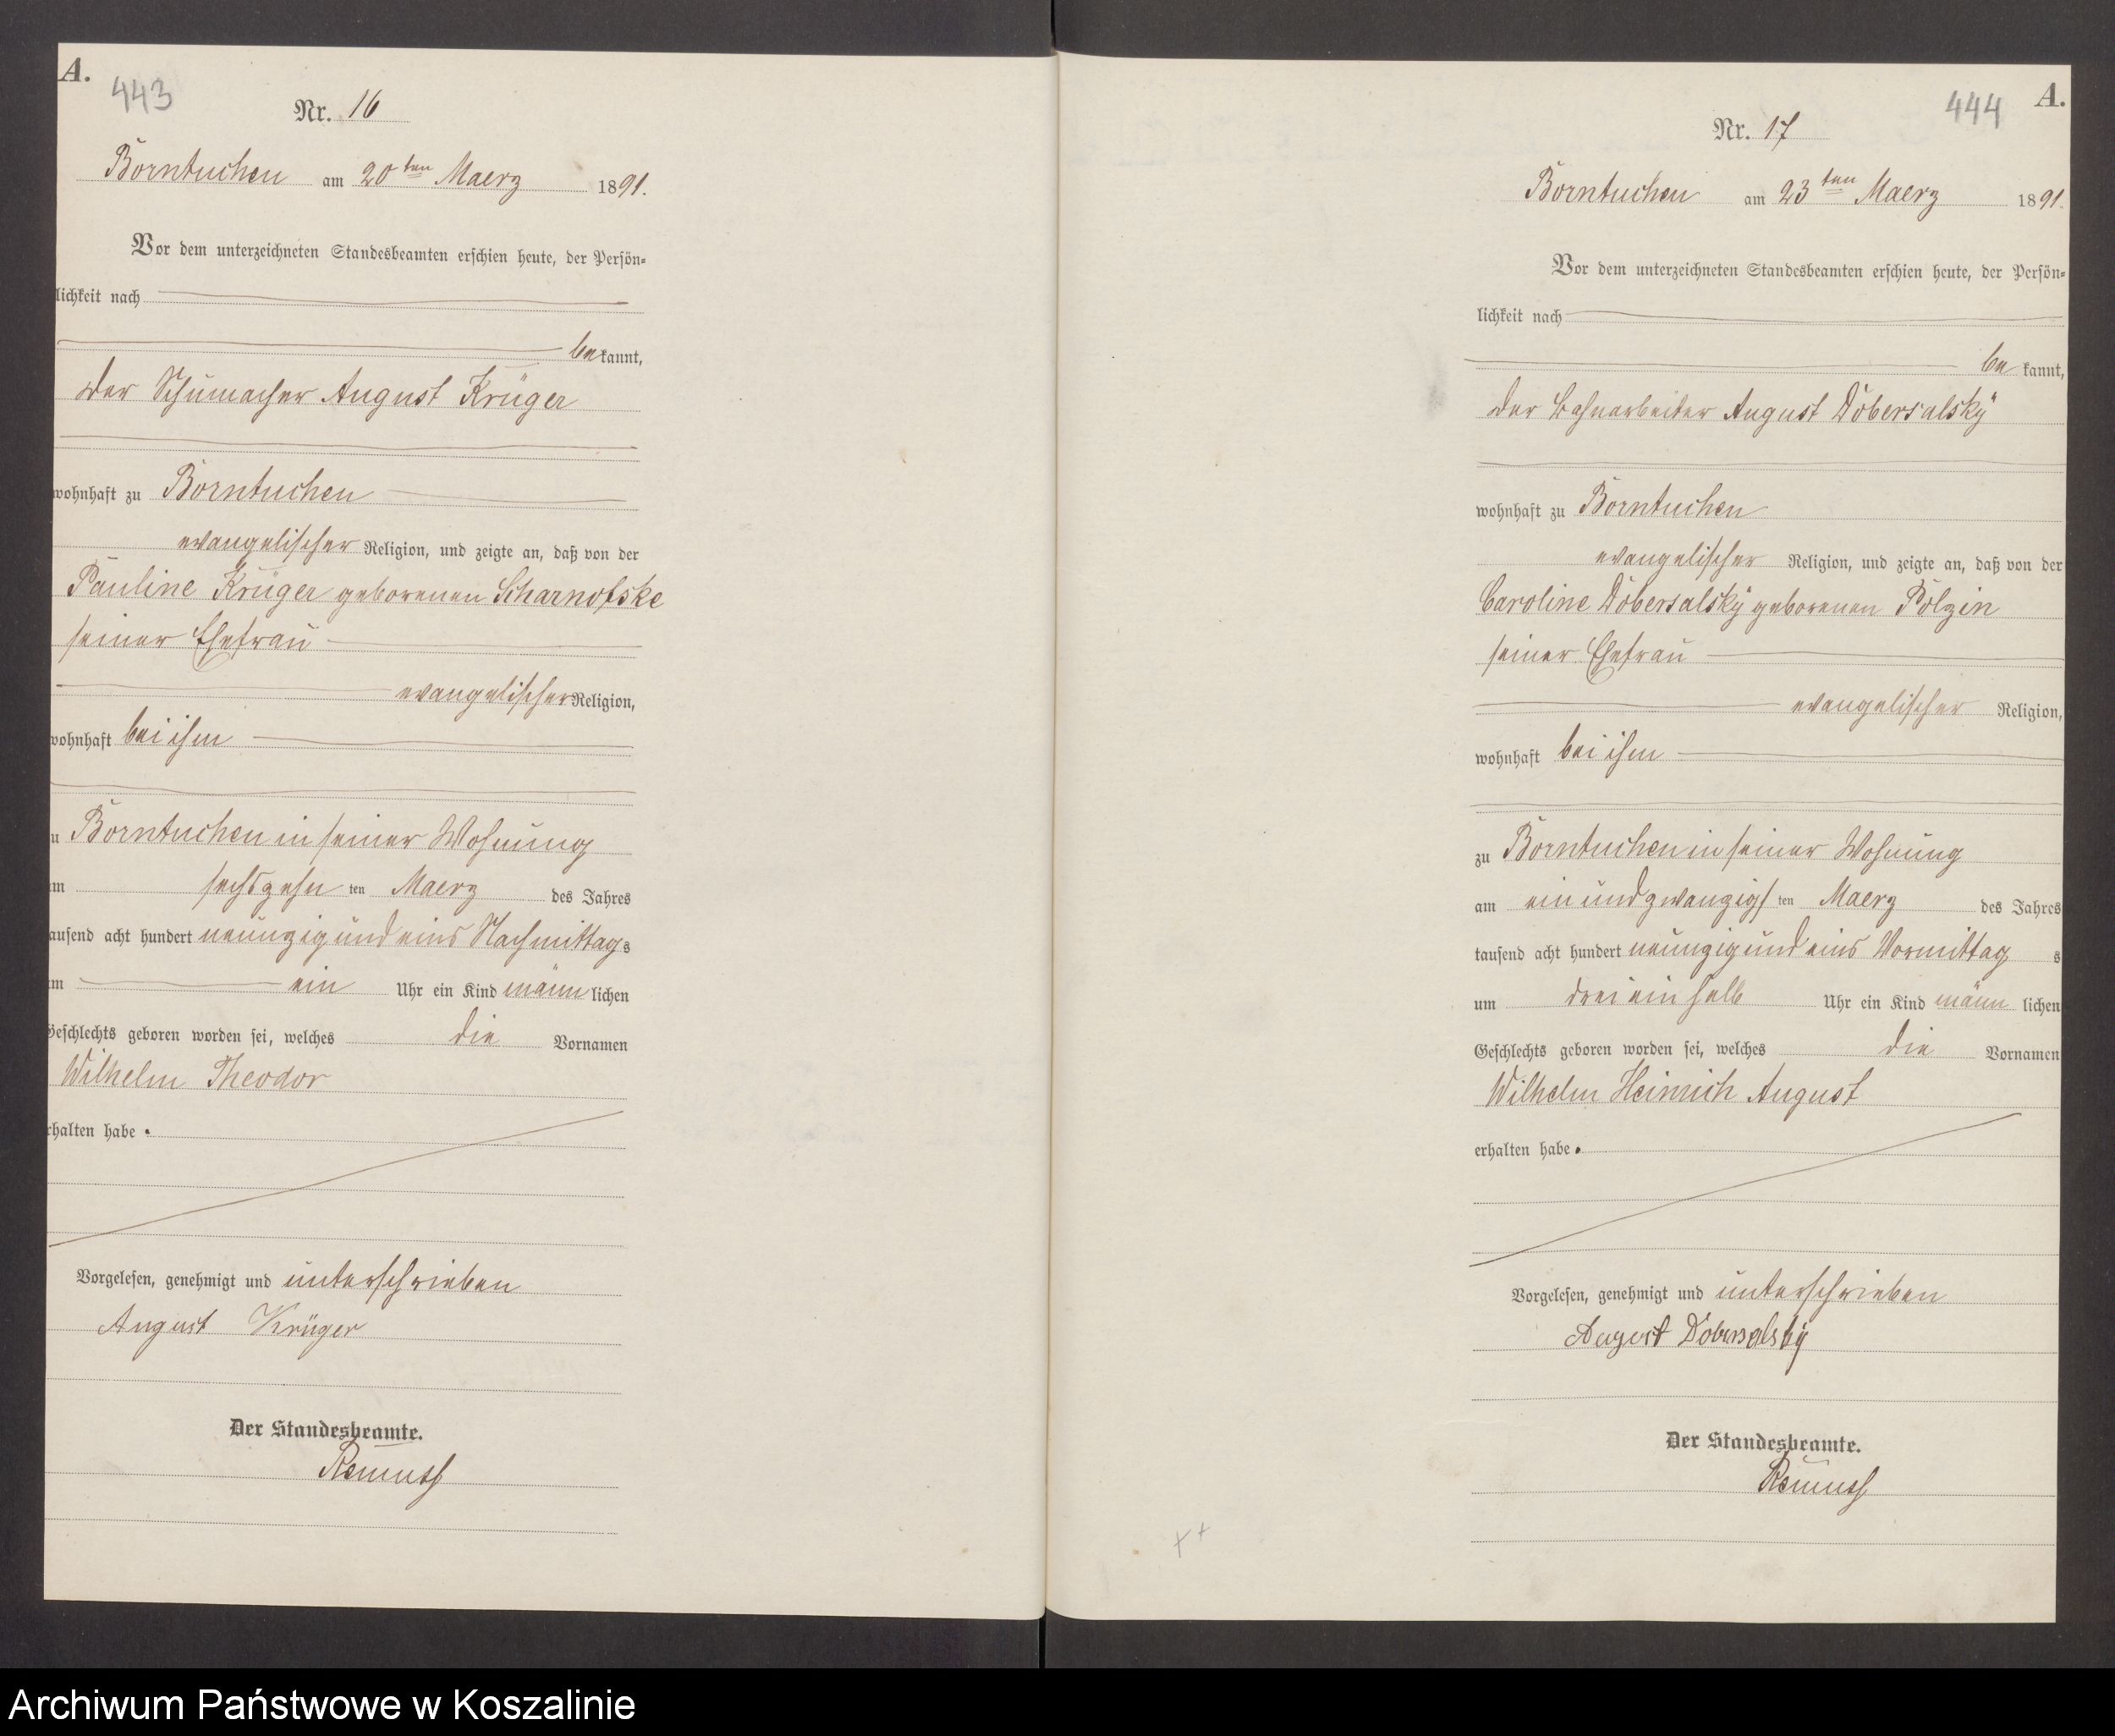 A.
443
Nr. 16
Borntuchen am 20ten Maerz 1891.
Vor dem unterzeichneten Standesbeamten erschien heute, der Persön=
lichkeit nach
bekannt,
der Schumacher August Krüger
wohnhaft zu Borntuchen
evangelischer Religion, und zeigte an, daß von der
Pauline Krüger geborenen Scharnofske
seiner Ehefrau
evangelischer Religion,
wohnhaft bei ihm
u Borntuchen in seiner Wohnung
m sechszehn ten Maerz des Jahres
ausend acht hundert neunzig und eins Nachmittags
m ein Uhr ein Kind männlichen
Geschlechts geboren worden sei, welches die Vornamen
Wilhelm Theodor
rhalten habe.
Vorgelesen, genehmigt und unterschrieben
August Krüger
Der Standesbeamte.
A.
444
Nr. 17
Borntuchen am 23ten Maerz 1891.
Vor dem unterzeichneten Standesbeamten erschien heute, der Persön=
lichkeit nach
bekannt,
der Bahnarbeiter August Döbersalsky
wohnhaft zu Borntuchen
evangelischer Religion, und zeigte an, daß von der
Caroline Döbersalsky geborenen Polzin
seiner Ehefrau
evangelischer Religion,
wohnhaft bei ihm
zu Borntuchen in seiner Wohnung
am ein und zwanzigsten Maerz des Jahres
tausend acht hundert neunzig und eins Vormittags
um drei ein halb Uhr ein Kind männlichen
Geschlechts geboren worden sei, welches die Vornamen
Wilhelm Heinrich August
erhalten habe.
Vorgelesen, genehmigt und unterschrieben
August Döbersalsky
Der Standesbeamte.
Archiwum Państwowe w Koszalinie